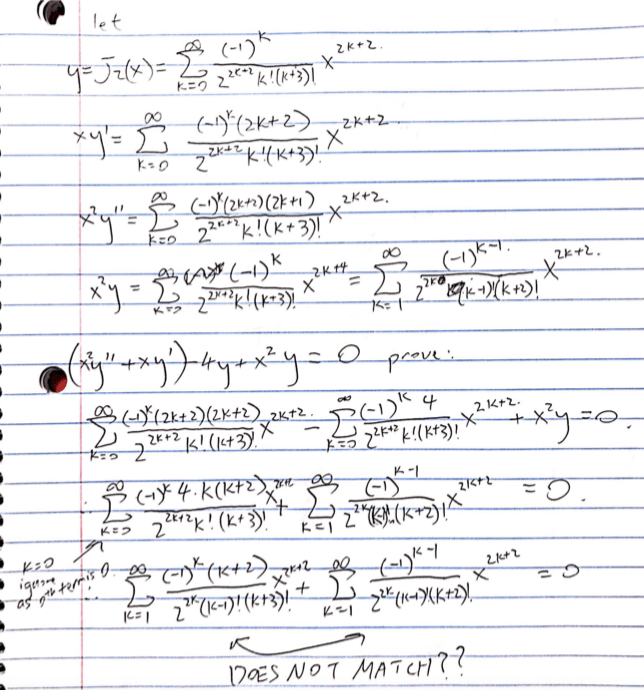 let
y = J₂(x) = ∑_{k=0}^{∞} (-1)^k / (2^{2k+2} k!(k+3)!) x^{2k+2}.
xy' = ∑_{k=0}^{∞} (-1)^k (2k+2) / (2^{2k+2} k!(k+3)!) x^{2k+2}.
x²y'' = ∑_{k=0}^{∞} (-1)^k (2k+2)(2k+1) / (2^{2k+2} k!(k+3)!) x^{2k+2}.
x²y = ∑_{k=0}^{∞} (-1)^k / (2^{2k+2} k!(k+3)!) x^{2k+4} = ∑_{k=1}^{∞} (-1)^{k-1} / (2^{2k} (k-1)!(k+2)!) x^{2k+2}.
(x²y'' + xy') - 4y + x²y = 0 prove:
∑_{k=0}^{∞} (-1)^k (2k+2)(2k+2) / (2^{2k+2} k!(k+3)!) x^{2k+2} - ∑_{k=0}^{∞} (-1)^k 4 / (2^{2k+2} k!(k+3)!) x^{2k+2} + x²y = 0.
∴ ∑_{k=0}^{∞} (-1)^k 4·k(k+2) / (2^{2k+2} k!(k+3)!) x^{2k+2} + ∑_{k=1}^{∞} (-1)^{k-1} / (2^{2k} (k-1)!(k+2)!) x^{2k+2} = 0.
k=0
ignore
as 0th term is 0.
∴ ∑_{k=1}^{∞} (-1)^k (k+2) / (2^{2k} (k-1)!(k+3)!) x^{2k+2} + ∑_{k=1}^{∞} (-1)^{k-1} / (2^{2k} (k-1)!(k+2)!) x^{2k+2} = 0
DOES NOT MATCH??